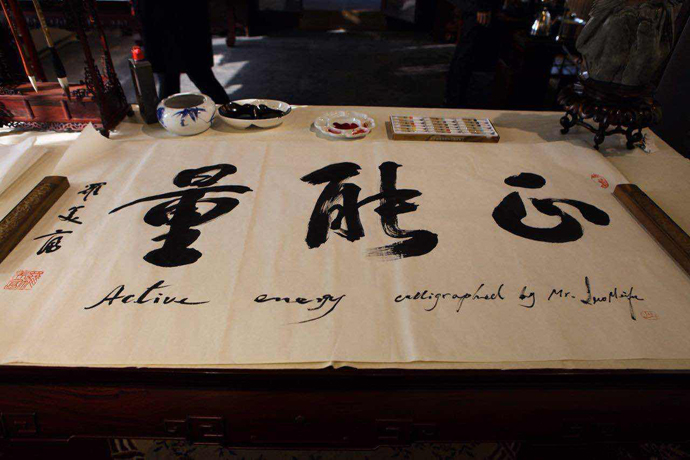 正能量
Active energy calligraphed by Mr.